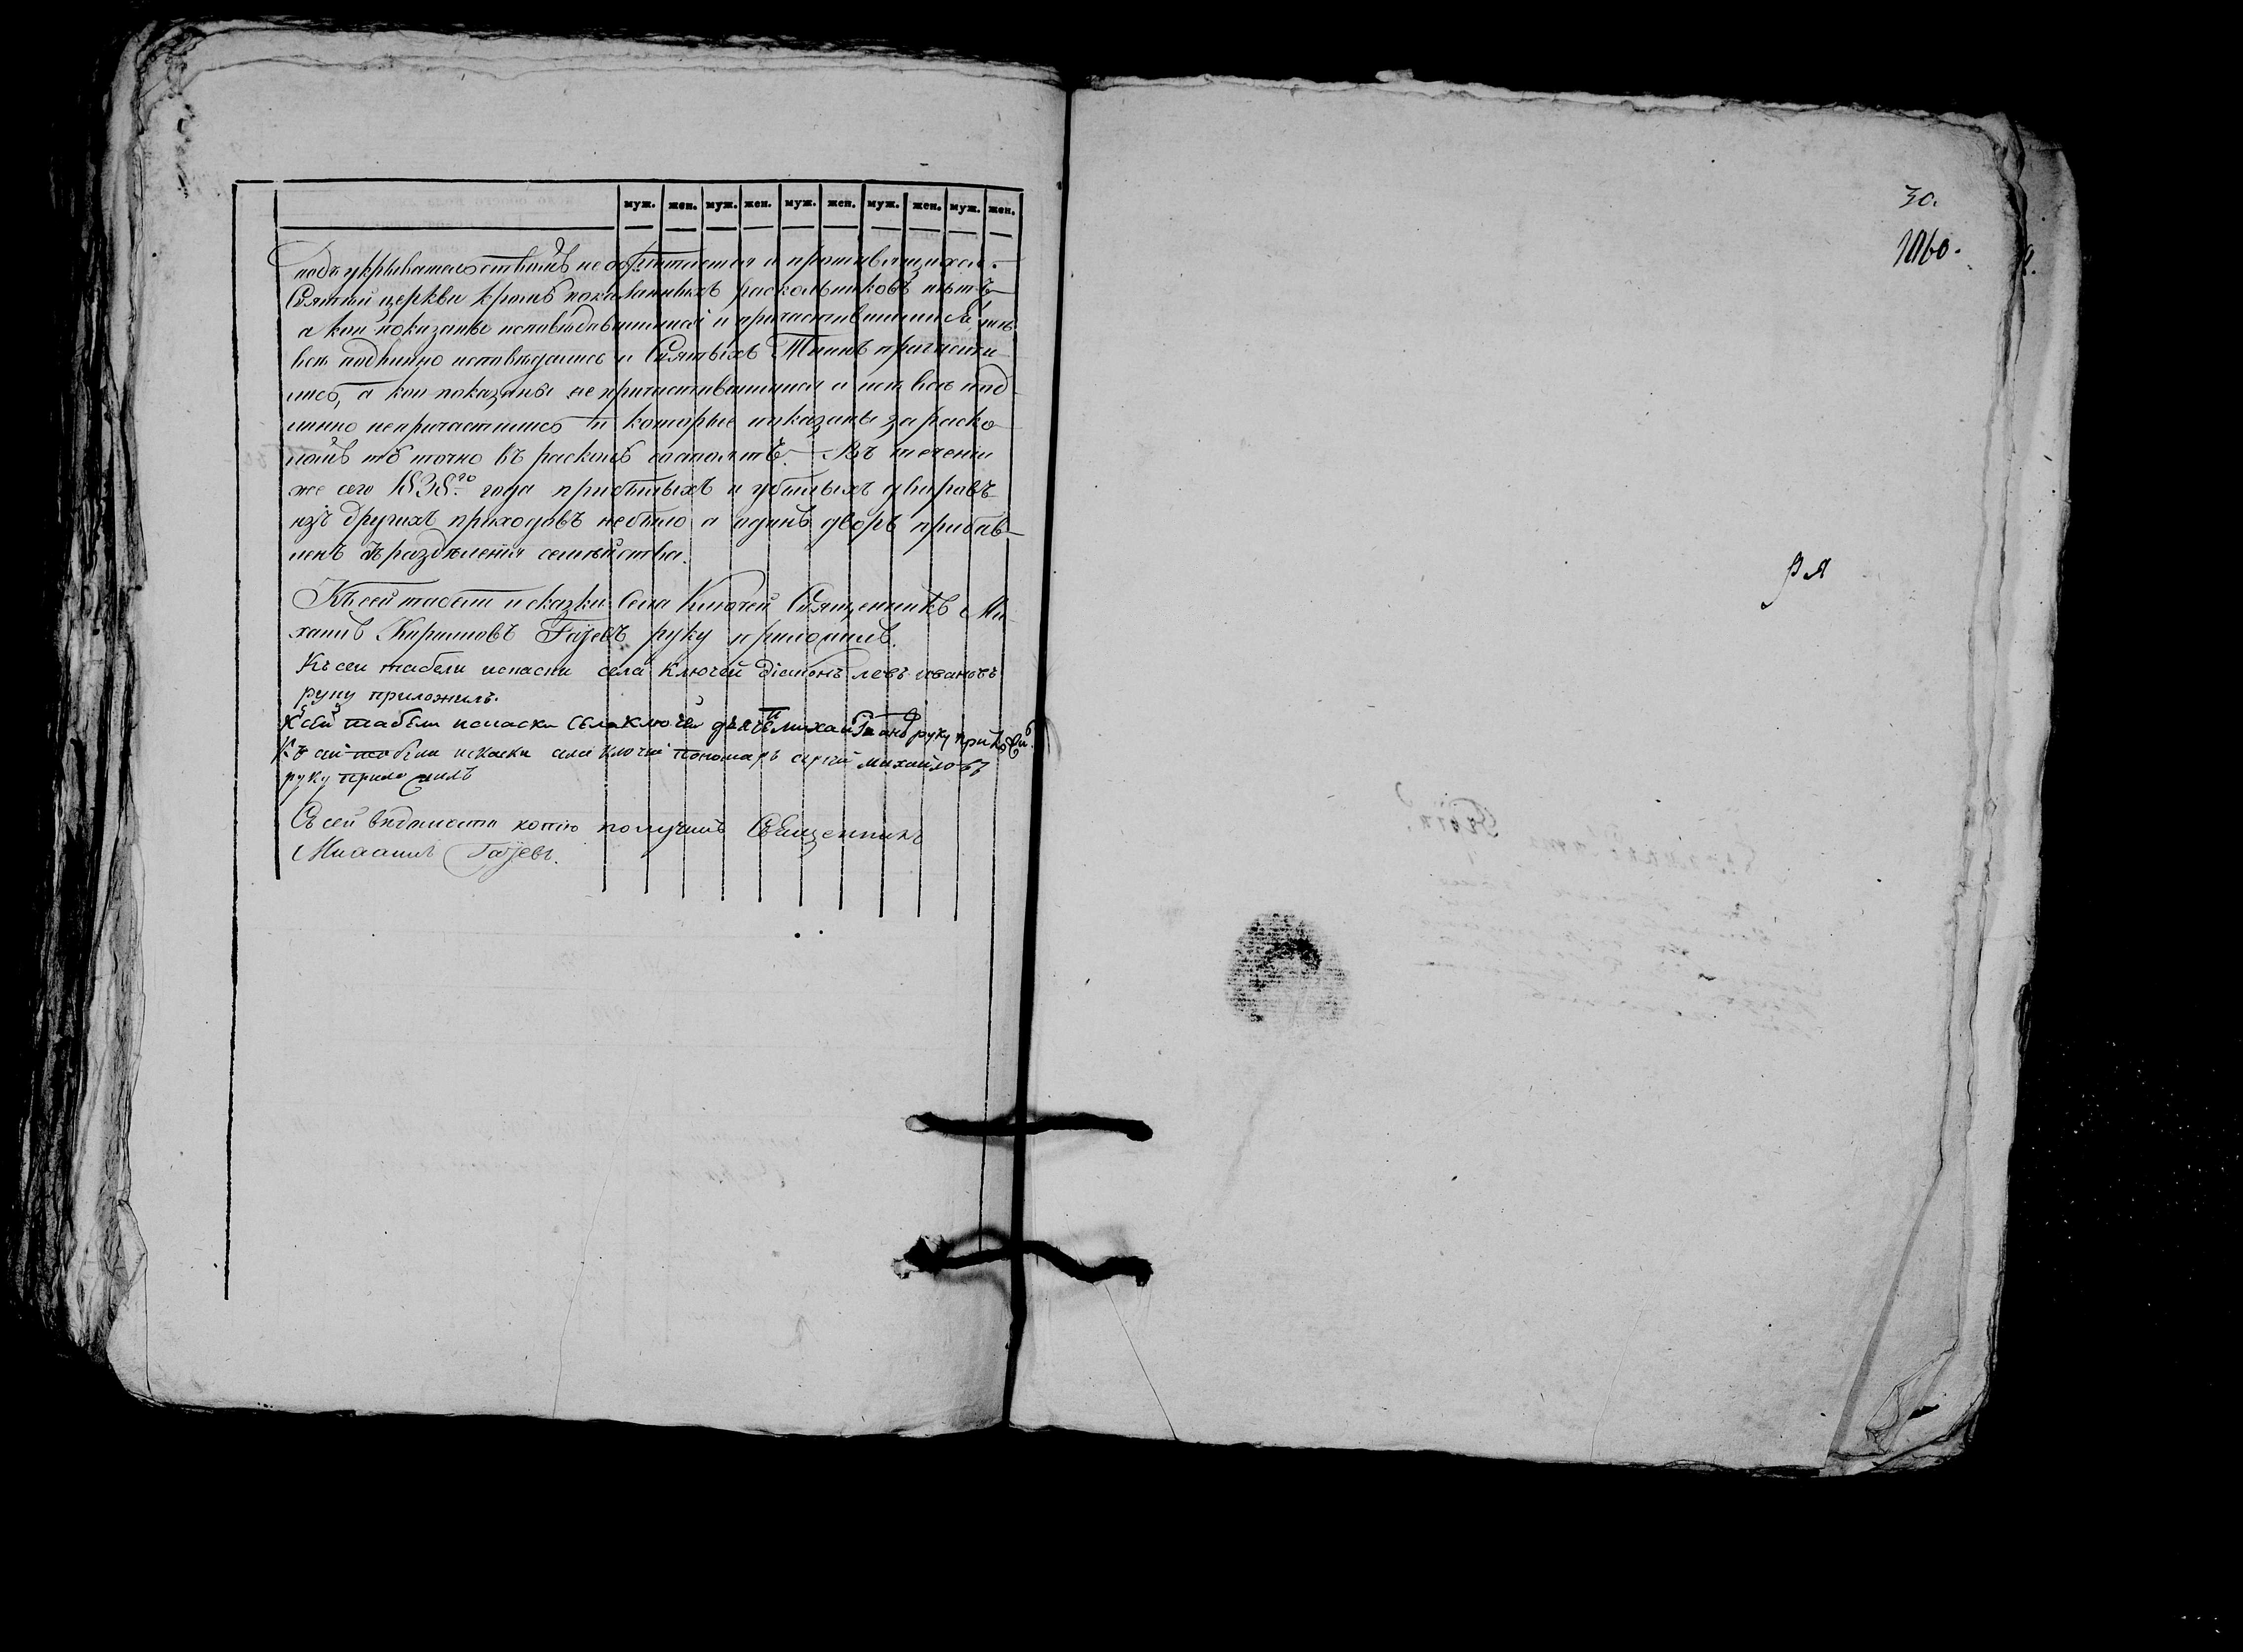 муж. жен. муж. жен. муж. жен. муж. жен. муж. жен.
подъ укрывательствомъ не
Святой церкви кромѣ показанныхъ раскольниковъ нѣтъ
а кои показаны исповѣдавшимися и причастившимися тѣ
всѣ подлинно исповѣдались и Святыхъ Таинъ причасти-
лись, а кои показаны не причастившимися и тѣ всѣ под-
линно непричастились и которые показаны за раско-
ломъ тѣ точно въ расколѣ состоятъ. Въ теченіи
же сего 1838го года прибылыхъ и убылыхъ дворовъ
изъ другихъ приходовъ небыло а одинъ дворъ прибав-
ленъ раздѣленія семейства.
Къ сей табели и сказки Села Ключей Священникъ Ми-
хаилъ Кириловъ Гаjевъ руку приложилъ.
Къ сеи табели исказки села Ключей діаконъ левъ ивановъ
руку приложилъ.
К сей табели исказки села ключей руку
Къ сей табели исказки села ключей пономарь сергей михайловъ
руку приложилъ
Съ сей ведомости копію получилъ Священникъ
Михаилъ Гаjевъ.
30.
1060.
РЯ